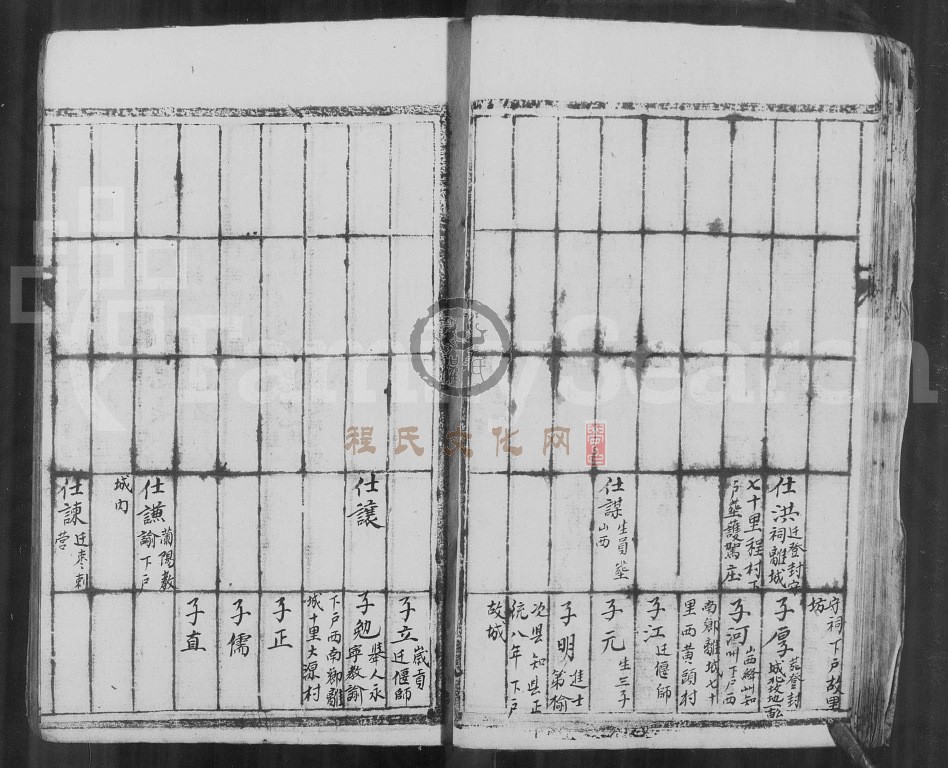 仕洪 迁登封守
祠離城
七十里程村下
戶塋護駕庄
仕謀 生員塋
山西
仕讓
仕謙 蘭陽教
諭下戶
城內
仕諫 迁棗刺
營
守祠下戶故里
坊
子厚 登封
城北坟地一
子河 山西 州知
州下戶西
南鄉離城七十
里西黃頭村
子江 迁偃師
子元 生三子
子明 進士
第榆
次县知县正
統八年下戶
故城
子立 歲貢
迁偃師
子勉 舉人永
寧教諭
下戶西南鄉離
城十里大源村
子正
子儒
子直
程氏文化网
FamilySearch